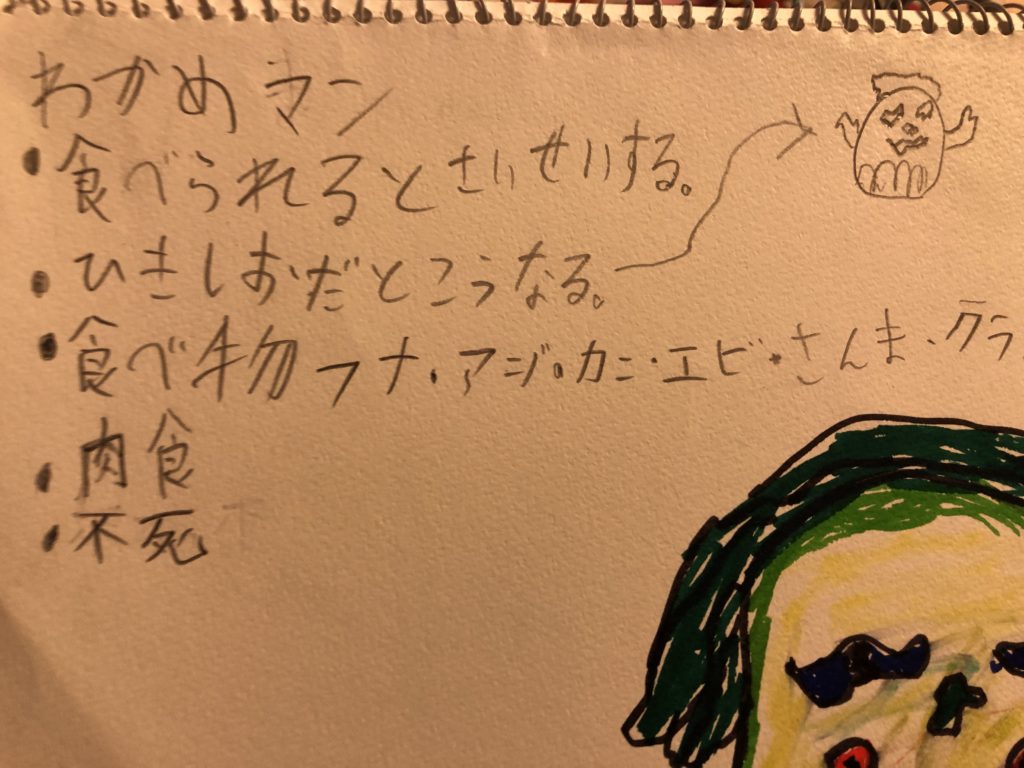 わかめマン
・食べられるとさいせいする。
・ひきしおだとこうなる。
・食べ物フナ・アジ・カニ・エビ・さんま・クラ
・肉食
・不死